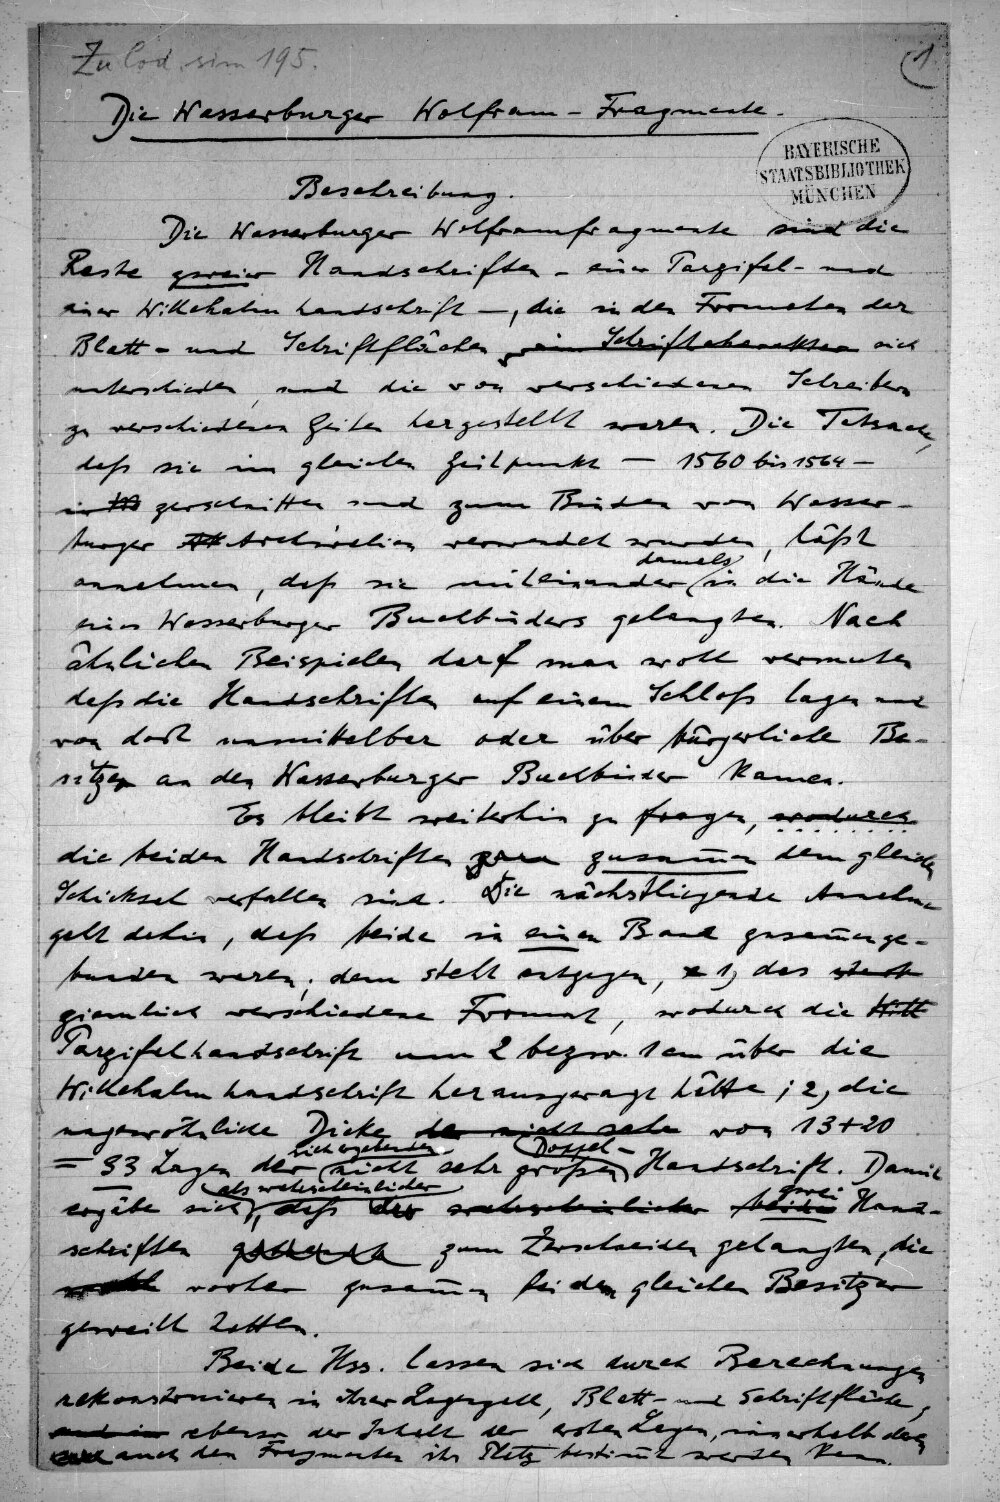 Zu Cod. sim 195.
1
Die Wasserburger Wolfram-Fragmente.
BAYERISCHE
STAATSBIBLIOTHEK
MÜNCHEN
Beschreibung.
Die Wasserburger Wolframfragmente sind die
Reste zweier Handschriften - einer Parzifal- und
einer Willehalm handschrift -, die in den Formaten der
Blatt- und Schriftflächen, im Schriftcharakter sich
unterschieden, und die von verschiedenen Schreibern
zu verschiedenen Zeiten hergestellt waren. Die Tatsache,
daß sie im gleichen Zeitpunkt - 1560 bis 1564 -
zerschnitten und zum Binden von Wasser-
burger Archivalien verwendet wurden, läßt
damals
annehmen, daß sie miteinander in die Hände
eines Wasserburger Buchbinders gelangten. Nach
ähnlichen Beispielen darf man wohl vermuten
daß die Handschriften auf einem Schloß lagen und
von dort unmittelbar oder über bürgerliche Be-
sitzer an den Wasserburger Buchbinder kamen.
Es bleibt weiterhin zu fragen, wodurch
die beiden Handschriften zusam̅en dem gleichen
Schicksal verfallen sind. Die nächstliegende Annahme
geht dahin, daß beide in einen Band zusam̅enge-
bunden waren; dem steht entgegen, 1, das
ziemlich verschiedene Format, wodurch die
Parzifalhandschrift um 2 bezw. 1 cm über die
Willehalm handschrift herausgeragt hätte; 2, die
ungewöhnliche Dicke der nicht sehr von 13+20
sich ergebenden Doppel-
= 33 Lagen der nicht sehr großen Handschrift. Damit
als wahrscheinlicher zwei
ergäbe sich, daß der wahrscheinlicher beide Hand-
schriften zum Zerschneiden gelangten, die
wohl vorher zusam̅en bei dem gleichen Besitzer
geweilt hatten.
Beide Hss. lassen sich durch Berechnungen
rekonstruieren in ihrer Lagenzahl, Blatt- und Schriftfläche,
ebenso der Inhalt der ersten Lagen, innerhalb deren
auch den Fragmenten ihr Platz bestim̅t werden kann.